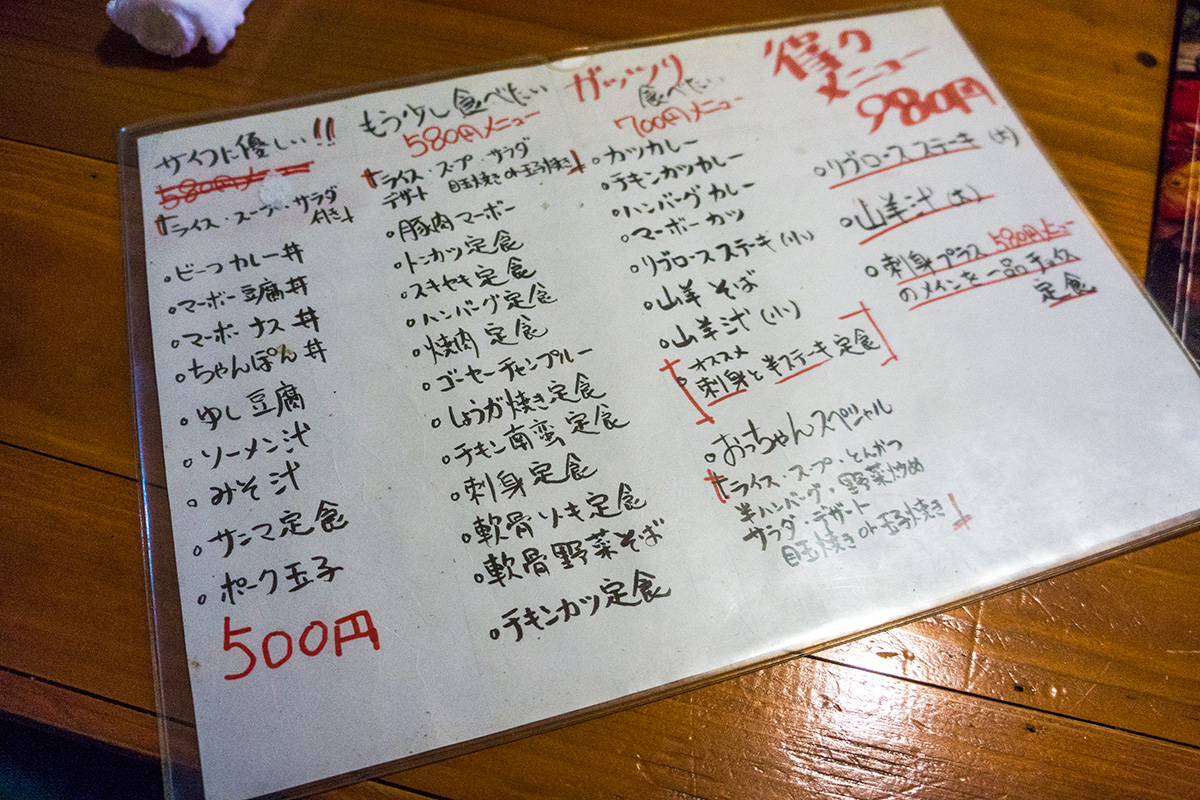 サイフに優しい!!
580円メニュー
ライス・スープ・サラダ
付き
。ビーフカレー丼
。マーボー豆腐丼
。マーボーナス丼
。ちゃんぽん丼
。ゆし豆腐
。ソーメン汁
。みそ汁
。サンマ定食
。ポーク玉子
500円
もう少し食べたい
580円メニュー
ライス・スープ・サラダ
デザート 目玉焼きor玉子焼き
。豚肉マーボー
。トンカツ定食
。スキヤキ定食
。ハンバーグ定食
。焼肉定食
。ゴーヤーチャンプルー
。しょうが焼き定食
。チキン南蛮定食
。刺身定食
。軟骨ソーキ定食
。軟骨野菜そば
。チキンカツ定食
ガッツリ
食べたい
700円メニュー
。カツカレー
。チキンカツカレー
。ハンバーグカレー
。マーボーカツ
。リブロースステーキ(小)
。山羊そば
。山羊汁(小)
オススメ
。刺身と半ステーキ定食
。おっちゃんスペシャル
ライス・スープ・とんかつ
半ハンバーグ・野菜炒め
サラダ・デザート
目玉焼きor玉子焼き
得の
メニュー
980円
。リブロースステーキ(大)
。山羊汁(大)
。刺身プラス580円メニュー
のメインを一品チョイス
定食